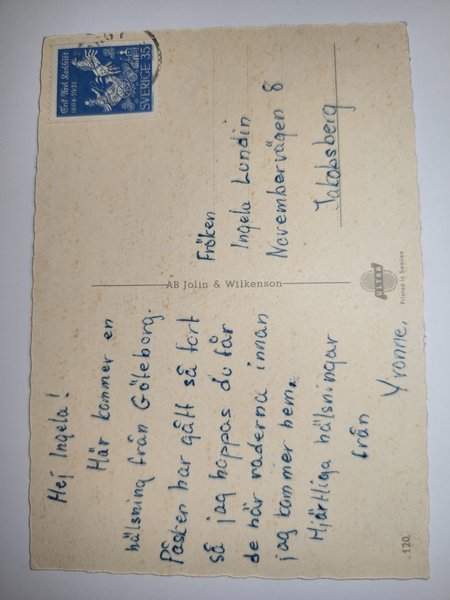 Hej Ingela!
Här kommer en
hälsning från Göteborg.
Påsken har gått så fort
så jag hoppas du får
de här raderna innan
jag kommer hem.
Hjärtliga hälsningar
från
Yvonne.
120.
AB Jolin & Wilkenson
Erik Axel Karlfeldt
1864-1931
SVERIGE 35
Fröken
Ingela Lundin
Novembervägen 8
Jakobsberg
ULTRA
Printed in Sweden